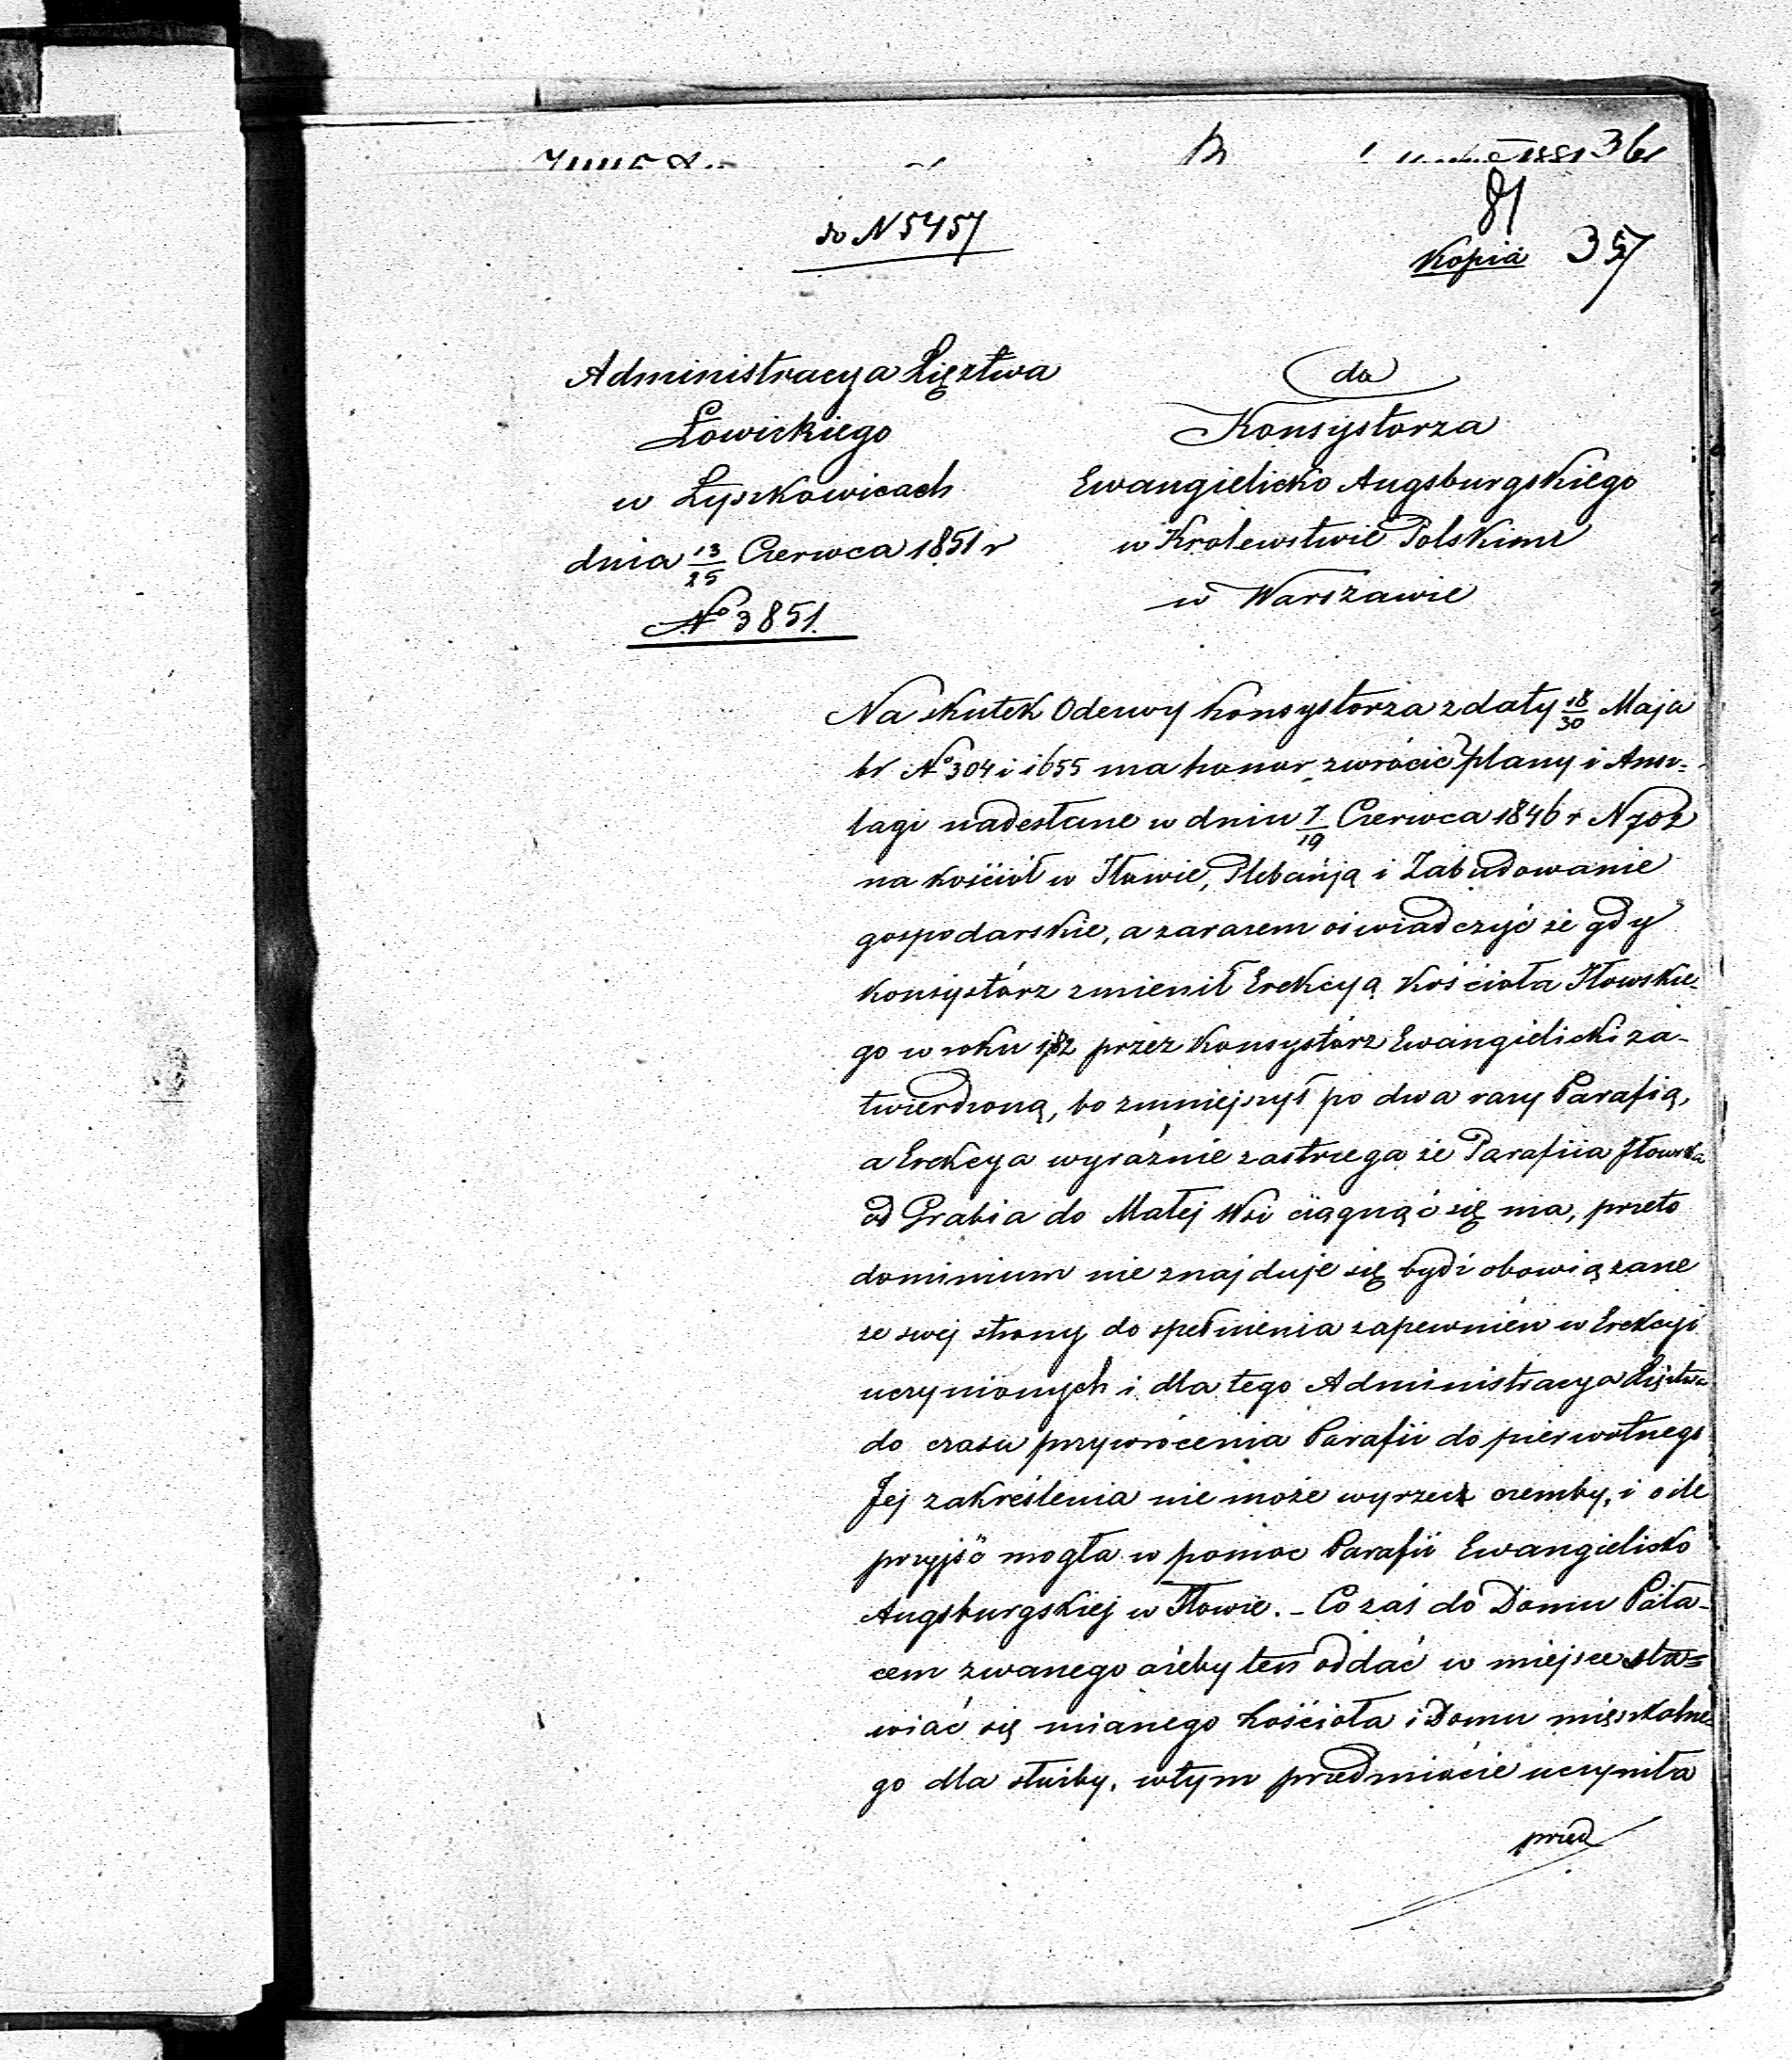 361
81
do N 5457
Kopia 357
Administracya Xięztwa
Łowickiego
w Łyszkowicach
dnia 13/25 Czerwca 1851 r
No 3851.
do
Konsystorza
Ewangielicko Augsburgskiego
w Krolewstwie Polskim
w Warszawie
Na skutek Odezwy Konsystorza z daty 18/30 Maja
br No 304 i 1655 ma honor zwrócić plany i Ansz-
lagi nadesłane w dniu 7/19 Czerwca 1846 r N 702
na kościół w Iłowie, Plebanją i Zabudowanie
gospodarskie, a zarazem oświadczyć że gdy
Konsystórz zmienił Erekcyą Kościoła Iłowskie-
go w roku przez Konsystórz Ewangielicki za-
twierdzoną, bo zmniejszył po dwa razy Parafią,
a Erekcya wyraźnie zastrzega że Parafiia Iłowska
od Grabia do Małej Wsi ciągnąć się ma, przeto
dominium nie znajduje się bydź obowiązane
ze swej strony do spełnienia zapewnień w Erekcyi
uczynionych i dla tego Administracya Xięztwa
do czasu przywrócenia Parafii do pierwotnego
Jej zakreślenia nie może wyrzec czemby, i o ile
przyjść mogła w pomoc Parafii Ewangielicko
Augsburgskiej w Iłowie. - Co zaś do Domu Pała-
cem zwanego ażeby ten oddać w miejsce sta-
wiać się mianego Kościoła i Domu mieszkalne-
go dla służby, w tym przedmiocie uczyniła
przed